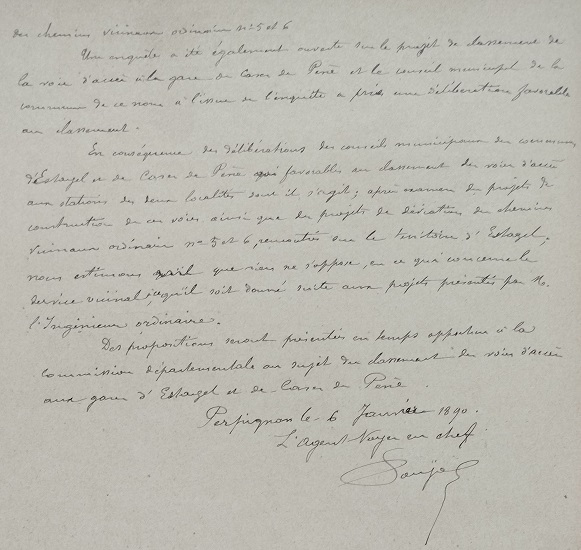 des chemins vicinaux ordinaires nos 5 et 6
Une enquête a été également ouverte sur le projet de classement de
la voie d'accès à la gare de Cases de Pène et le conseil municipal de la
commune de ce nom à l'issue de l'enquête a pris une délibération favorable
au classement.
En conséquence des délibérations des conseils municipaux des communes
d'Estagel et de Cases de Pène favorables au classement des voies d'accès
aux stations des deux localités dont il s'agit; après examen des projets de
construction de ces voies ainsi que des projets de déviations des chemins
vicinaux ordinaires nos 5 et 6, rencontrés sur le territoire d'Estagel,
nous estimons que rien ne s'oppose, en ce qui concerne le
service vicinal, à ce qu'il soit donné suite aux projets présentés par M.
l'Ingénieur ordinaire.
Des propositions seront présentées en temps opportun à la
commission départementale au sujet du classement des voies d'accès
aux gares d'Estagel et de Cases de Pène.
Perpignan le 6 Janvier 1890.
L'Agent Voyer en chef